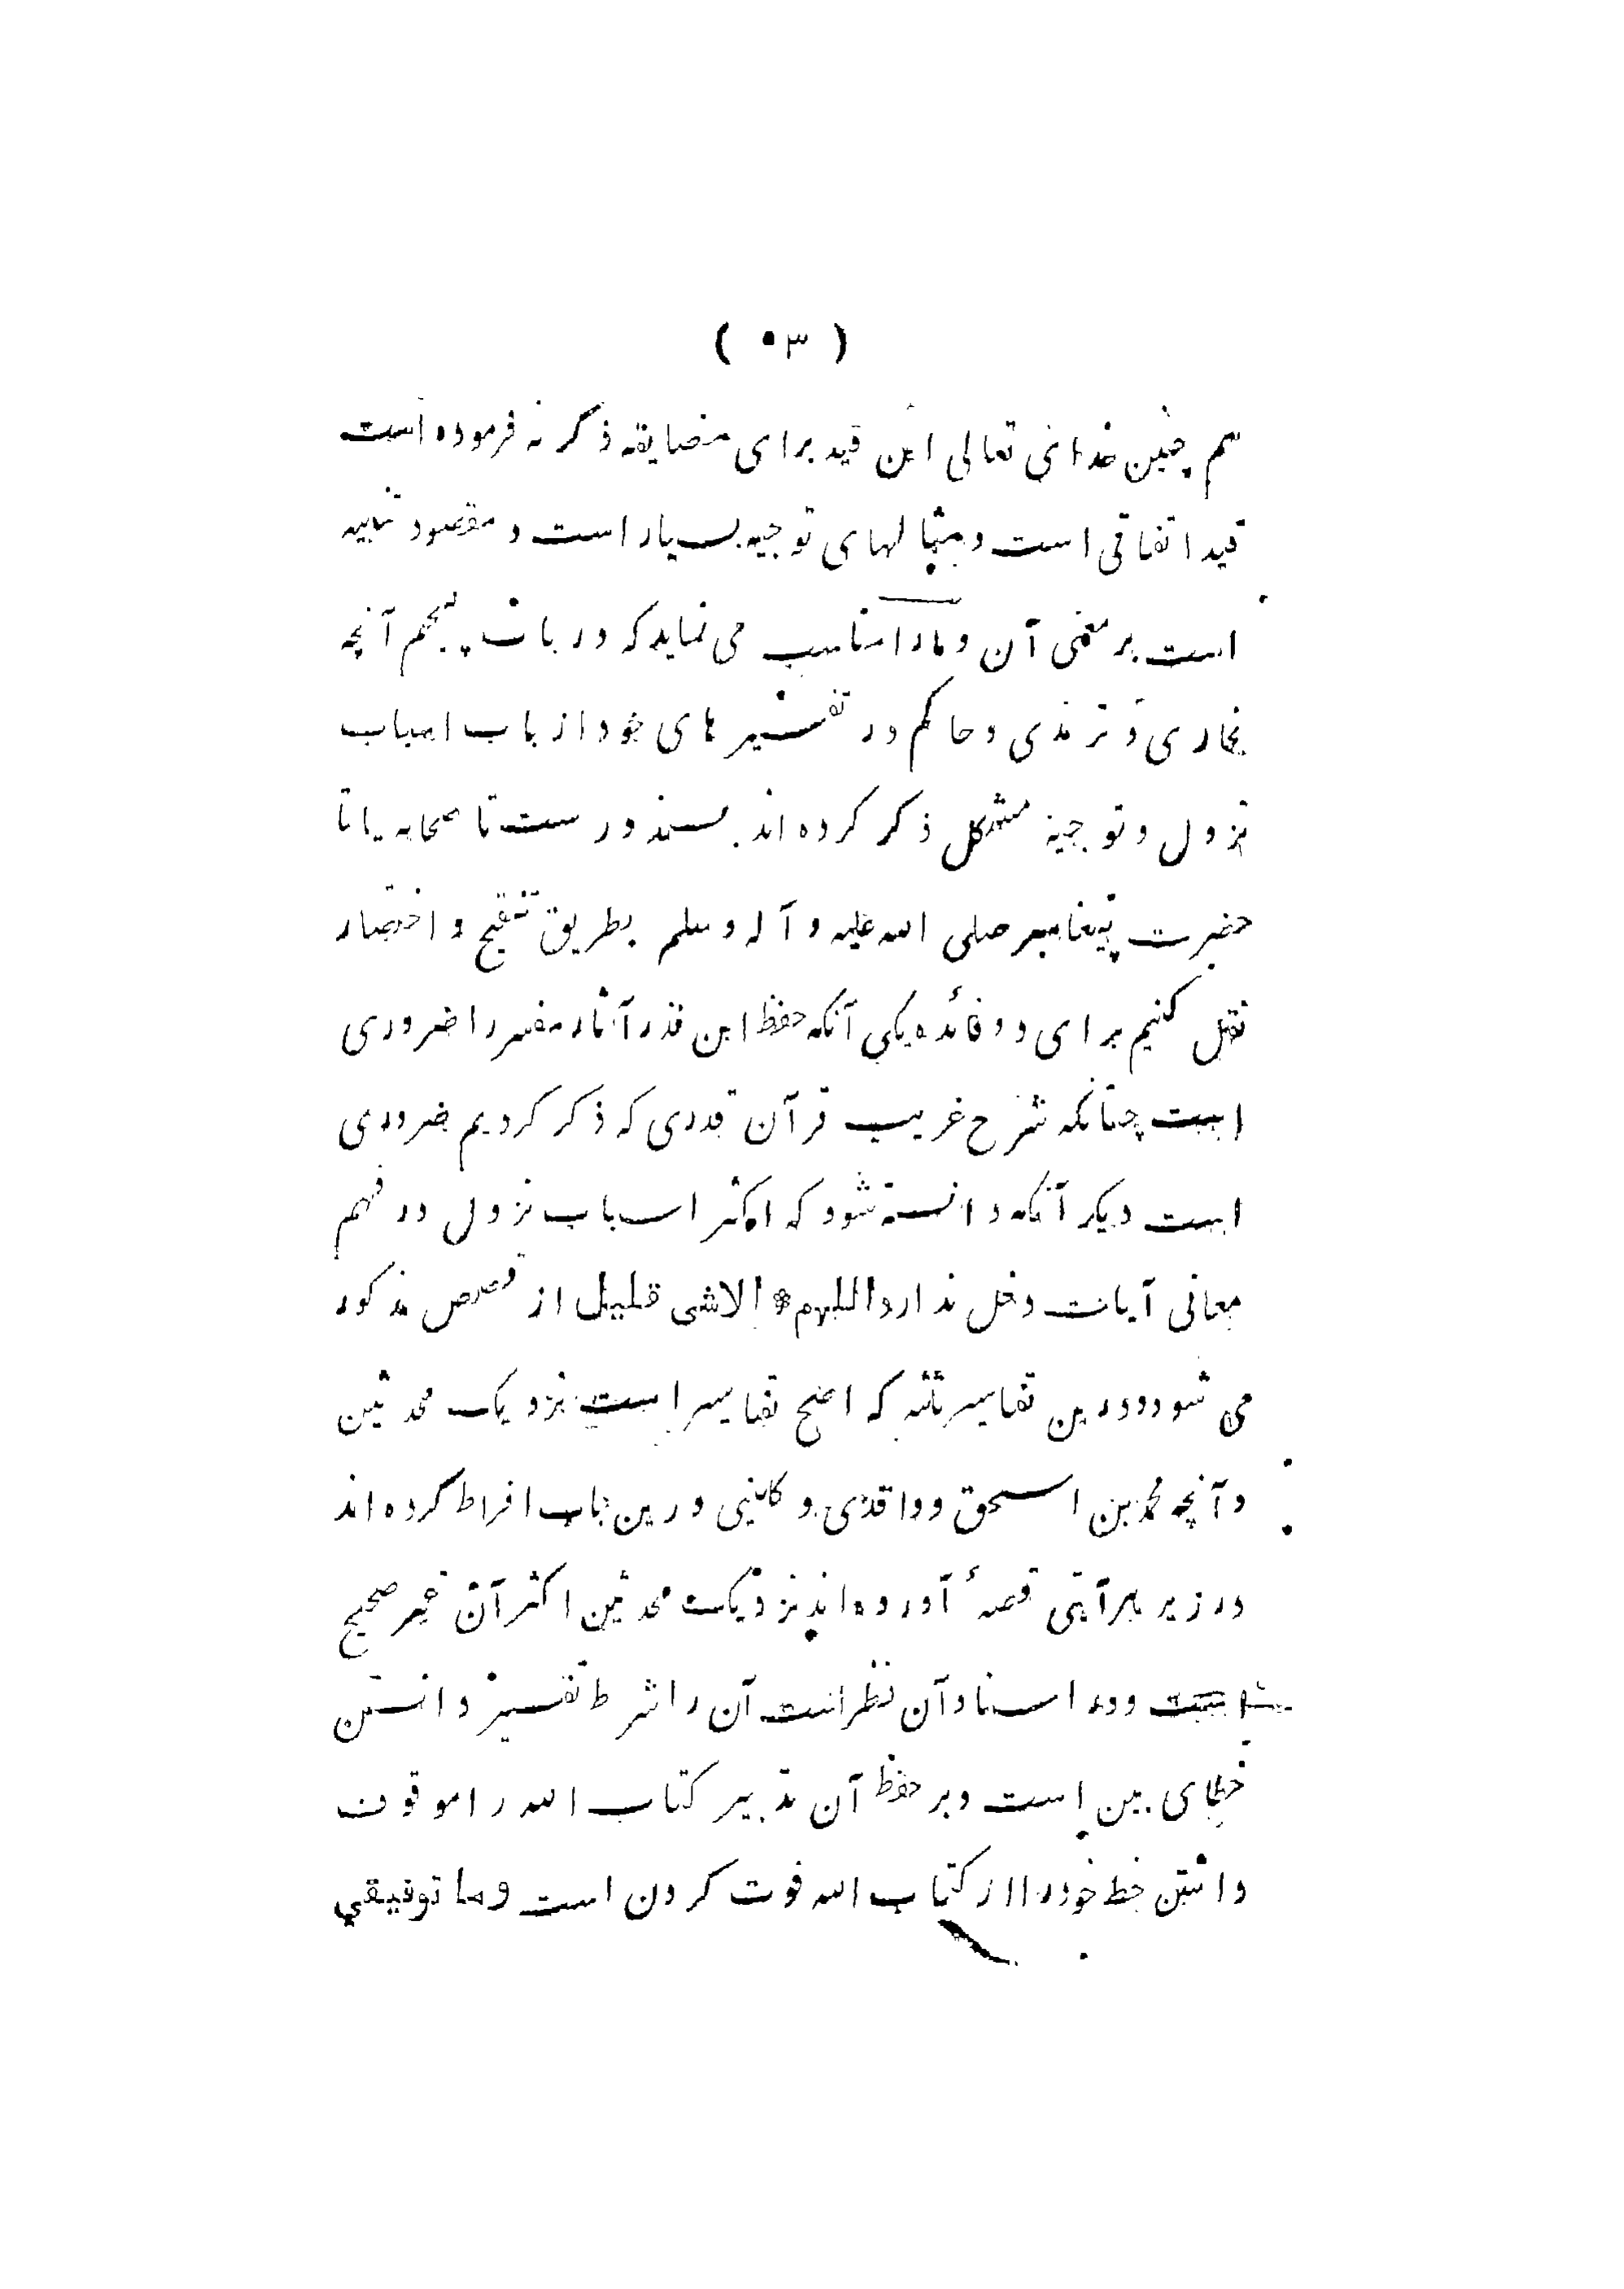 ( ۵۳ )
هم چنین خدای تعالی این قید برای مضایقه ذکر نه فرموده است
قید اتفاقی است و مثالهای توجیه بسیار است و مقصود تنبیه
است بر معنی آن و ما را مناسب می نماید که در باب پنجم آنچه
بخاری و ترمذی و حاکم در تفسیر های خود از باب اسباب
نزول و توجیه مشکل ذکر کرده اند بسند درست تا صحابه یا تا
حضرت پیغامبر صلی الله علیه و آله و سلم بطریق تنقیح و اختصار
نقل کنیم برای دو فائده یکی آنکه حفظ این قدر آثار مفسر را ضروری
است چنانکه شرح غریب قرآن قدری که ذکر کردیم ضروری
است دیگر آنکه دانسته شود که اکثر اسباب نزول در فهم
معانی آیات دخل ندارد اللهم * الا شی قلیل از قصص مذکور
می شود درین تفاسیر ثلثه که اصح تفاسیر است نزدیک محدثین
و آنچه محمد بن اسحق و واقدی و کلبی درین باب افراط کرده اند
در زیر هر آیتی قصهٔ آورده اند نزدیک محدثین اکثر آن غیر صحیح
است و در اسناد آن نظر است آن را شرط تفسیر دانستن
خطای بین است و بر حفظ آن تدبیر کتاب الله را موقوف
داشتن حظ خود را از کتاب الله فوت کردن است وما توفیقي